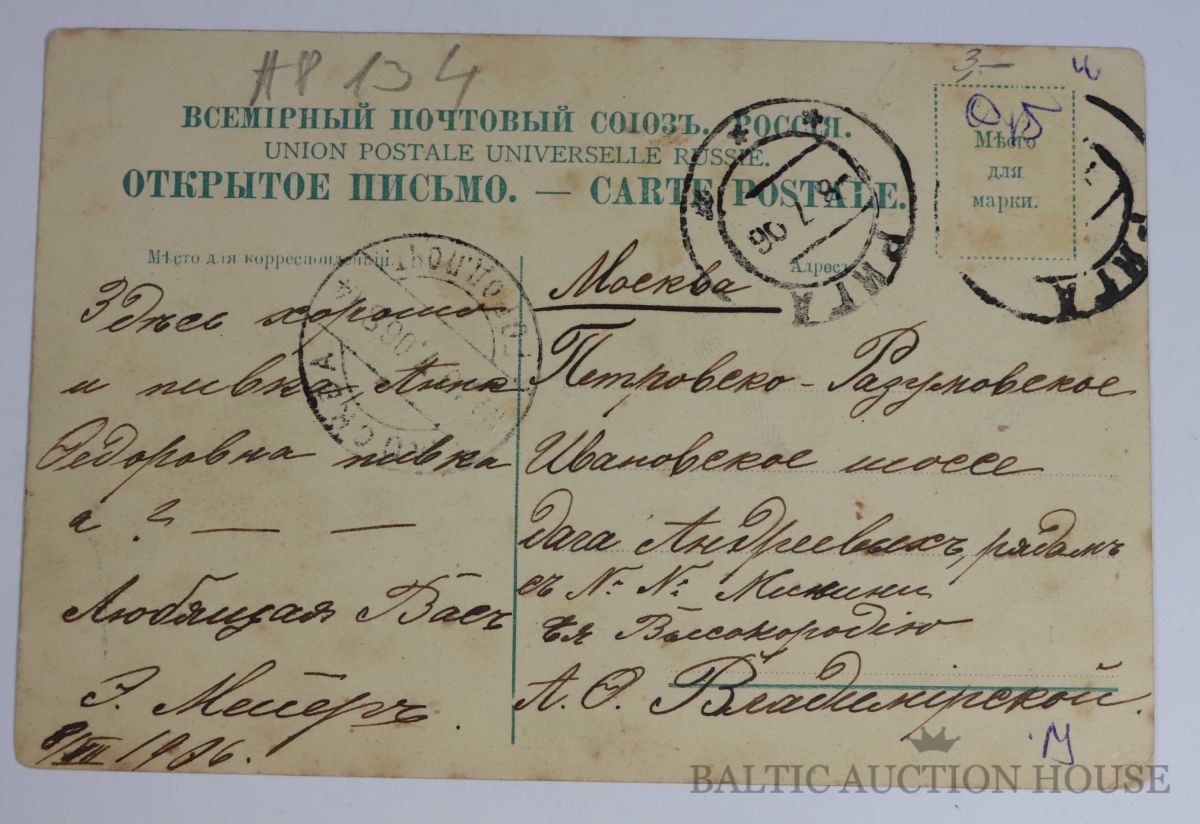 АР 134
3,-
ВСЕМІРНЫЙ ПОЧТОВЫЙ СОЮЗЪ. РОССІЯ.
UNION POSTALE UNIVERSELLE RUSSIE.
ОТКРЫТОЕ ПИСЬМО. — CARTE POSTALE.
Мѣсто
для
марки.
8 7 06
РИГА
РИГА
Мѣсто для корреспонденціи.
Адресъ
МОСКВА
Здѣсь хорошо
и пивка Анна
Ѳедоровна пивка
а ? — —
Любящая Васъ
Э. Мейеръ.
8/VII 1906.
Москва
Петровско-Разумовское
Ивановское шоссе
дача Андреевыхъ, рядомъ
съ №. №.
Ея Высокородію
А. Ѳ. Владимірской.
BALTIC AUCTION HOUSE